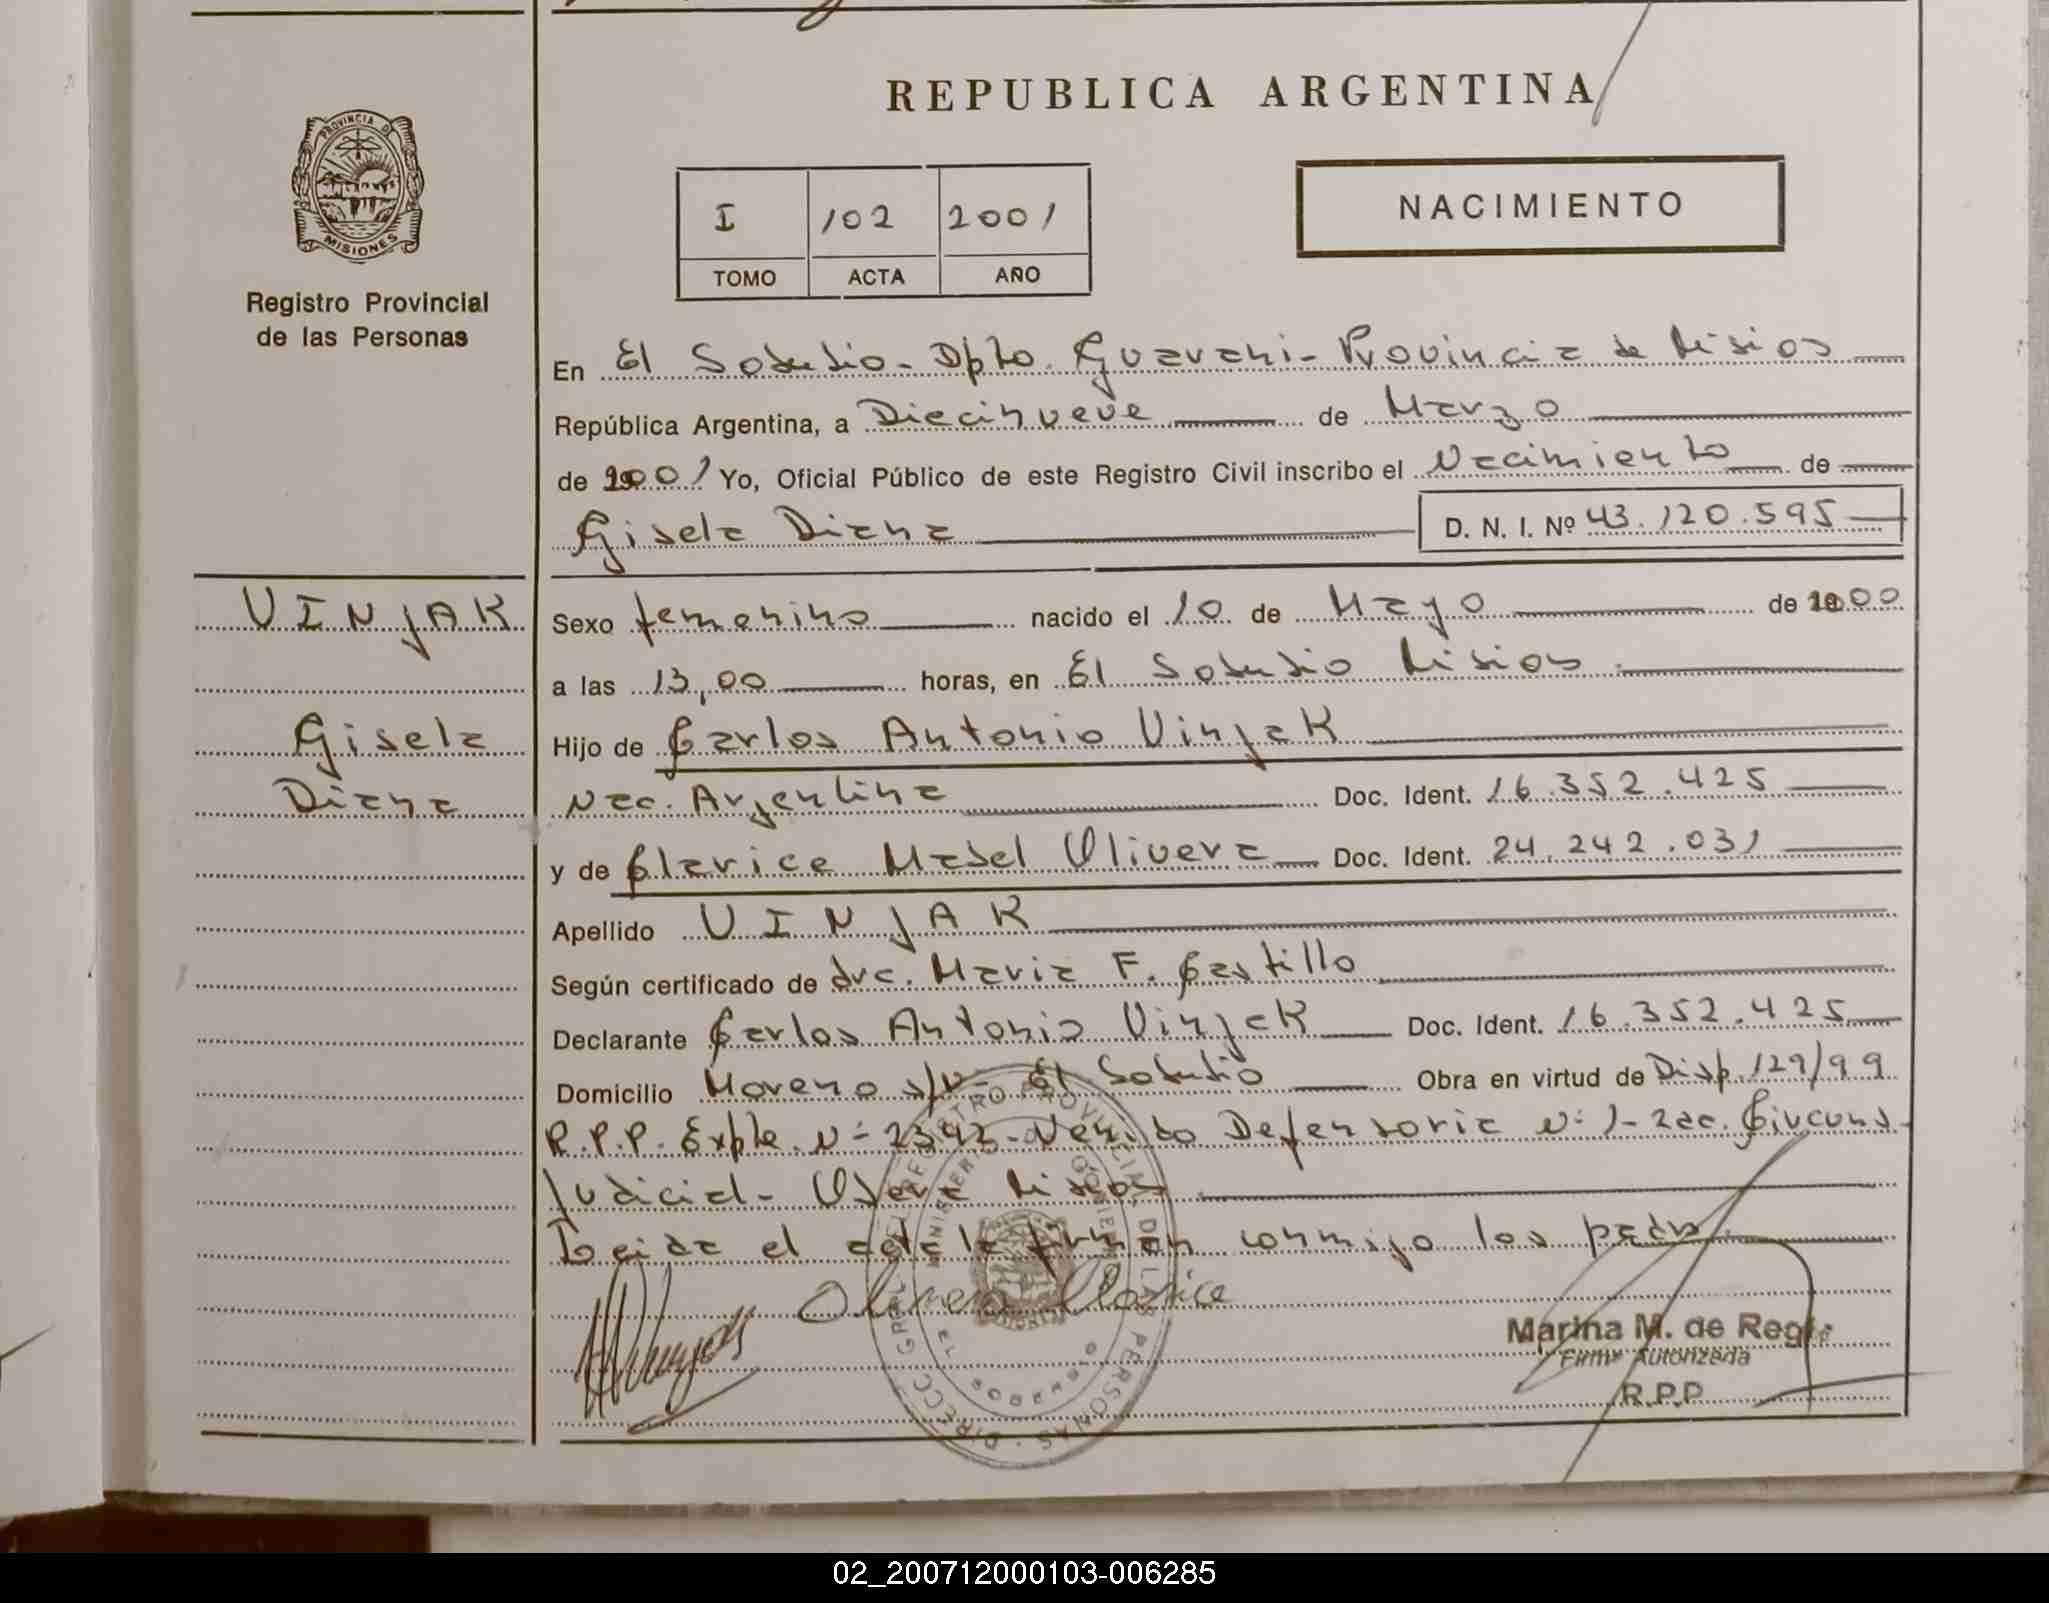 REPUBLICA ARGENTINA
PROVINCIA DE
MISIONES
Registro Provincial
de las Personas
I 102 2001
TOMO ACTA AÑO
NACIMIENTO
En El Soberbio - Dpto. Guarani - Provincia de Misiones
República Argentina, a Diecinueve de Marzo
de 2001 Yo, Oficial Público de este Registro Civil inscribo el Nacimiento de
Gisela Diana D. N. I. Nº 43.120.595
VINJAK
Gisela
Diana
Sexo femenino nacido el 10 de Mayo de 2000
a las 13,00 horas, en El Soberbio Misiones
Hijo de Carlos Antonio Vinjak
Nac. Argentina Doc. Ident. 16.352.425
y de Clarice Mabel Olivera Doc. Ident. 24.242.031
Apellido VINJAK
Según certificado de dra. Maria F. Castillo
Declarante Carlos Antonio Vinjak Doc. Ident. 16.352.425
Domicilio Moreno s/n - El Soberbio Obra en virtud de Disp. 129/99
R.P.P. Expte. Nº 2393 - Defensoria Nº 1 - 2da. Circuns.
Judicial - Obera Misiones
Leida el acta la firman conmigo los padres.
Olivera Clarice
Marina M. de Regi
Firma Autorizada
R.P.P.
02_200712000103-006285